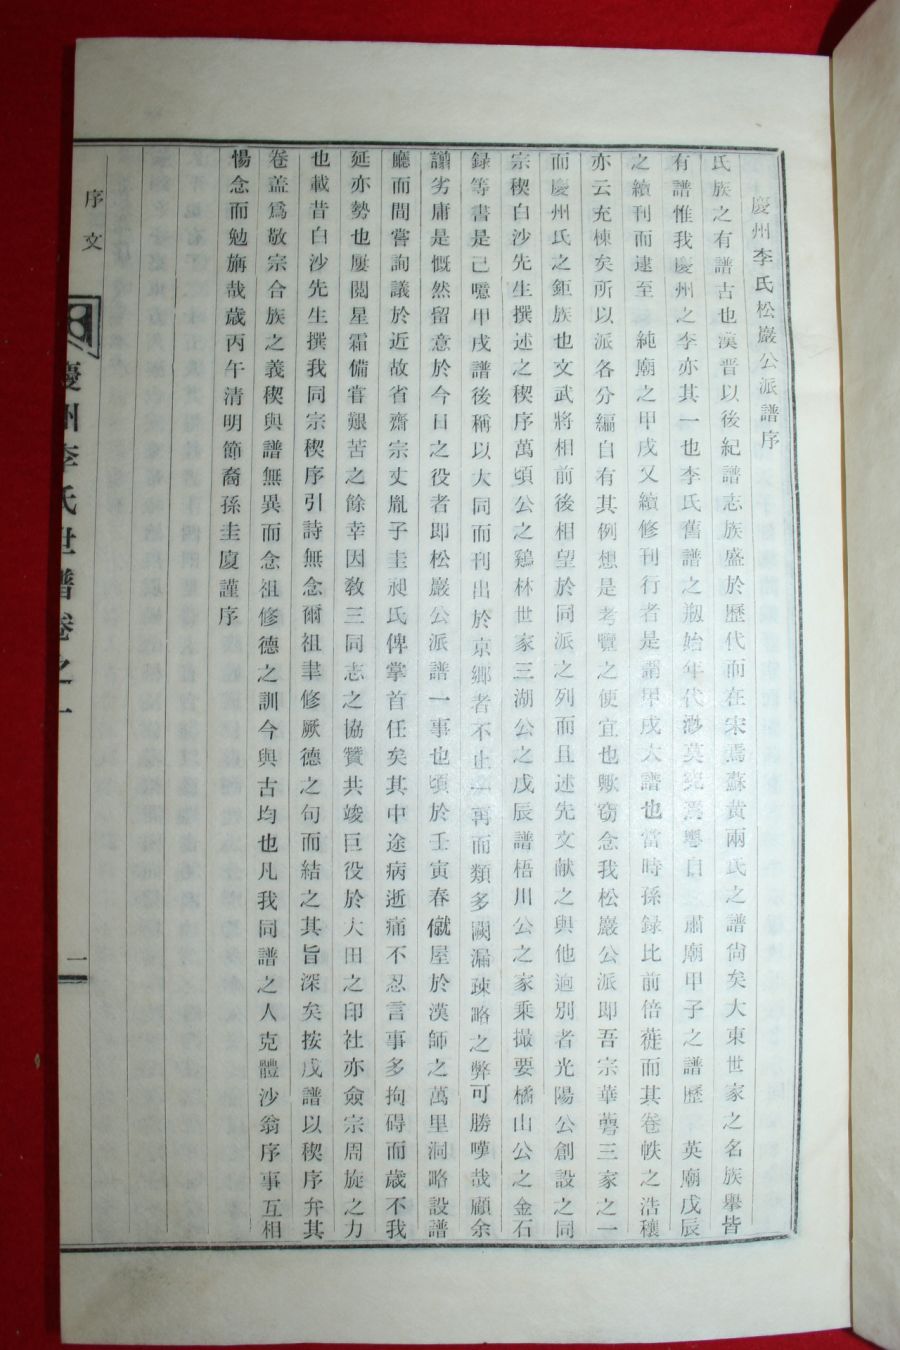 慶州李氏松巖公派譜序
氏族之有譜古也漢晋以後紀譜志族盛於歷代而在宋焉蘇黃兩氏之譜尙矣大東世家之名族擧皆
有譜惟我慶州之李亦其一也李氏舊譜之剏始年代渺莫究焉粤自 肅廟甲子之譜歷 英廟戊辰
之續刊而逮至 純廟之甲戌又續修刊行者是謂甲戌大譜也當時孫録比前倍蓰而其卷帙之浩穰
亦云充棟矣所以派各分編自有其例想是考覽之便宜也歟窃念我松巖公派即吾宗華蕚三家之一
而慶州氏之鉅族也文武將相前後相望於同派之列而且述先文献之與他逈別者光陽公創設之同
宗稧白沙先生撰述之稧序萬頃公之鷄林世家三湖公之戊辰譜梧川公之家乘撮要橘山公之金石
録等書是已噫甲戌譜後稱以大同而刊出於京鄕者不止一再而類多闕漏疎略之弊可勝嘆哉顧余
譾劣庸是慨然留意於今日之役者即松巖公派譜一事也頃於壬寅春僦屋於漢師之萬里洞略設譜
廳而間嘗詢議於近故省齋宗丈胤子圭昶氏俾掌首任矣其中途病逝痛不忍言事多拘碍而歲不我
延亦勢也屢閱星霜備甞艱苦之餘幸因敎三同志之協贊共竣巨役於大田之印社亦僉宗周旋之力
也載昔白沙先生撰我同宗稧序引詩無念爾祖聿修厥德之句而結之其旨深矣按戊譜以稧序弁其
卷盖爲敬宗合族之義稧與譜無異而念祖修德之訓今與古均也凡我同譜之人克體沙翁序事互相
惕念而勉旃哉歲丙午清明節裔孫圭廈謹序
序文
慶州李氏世譜卷之一
一